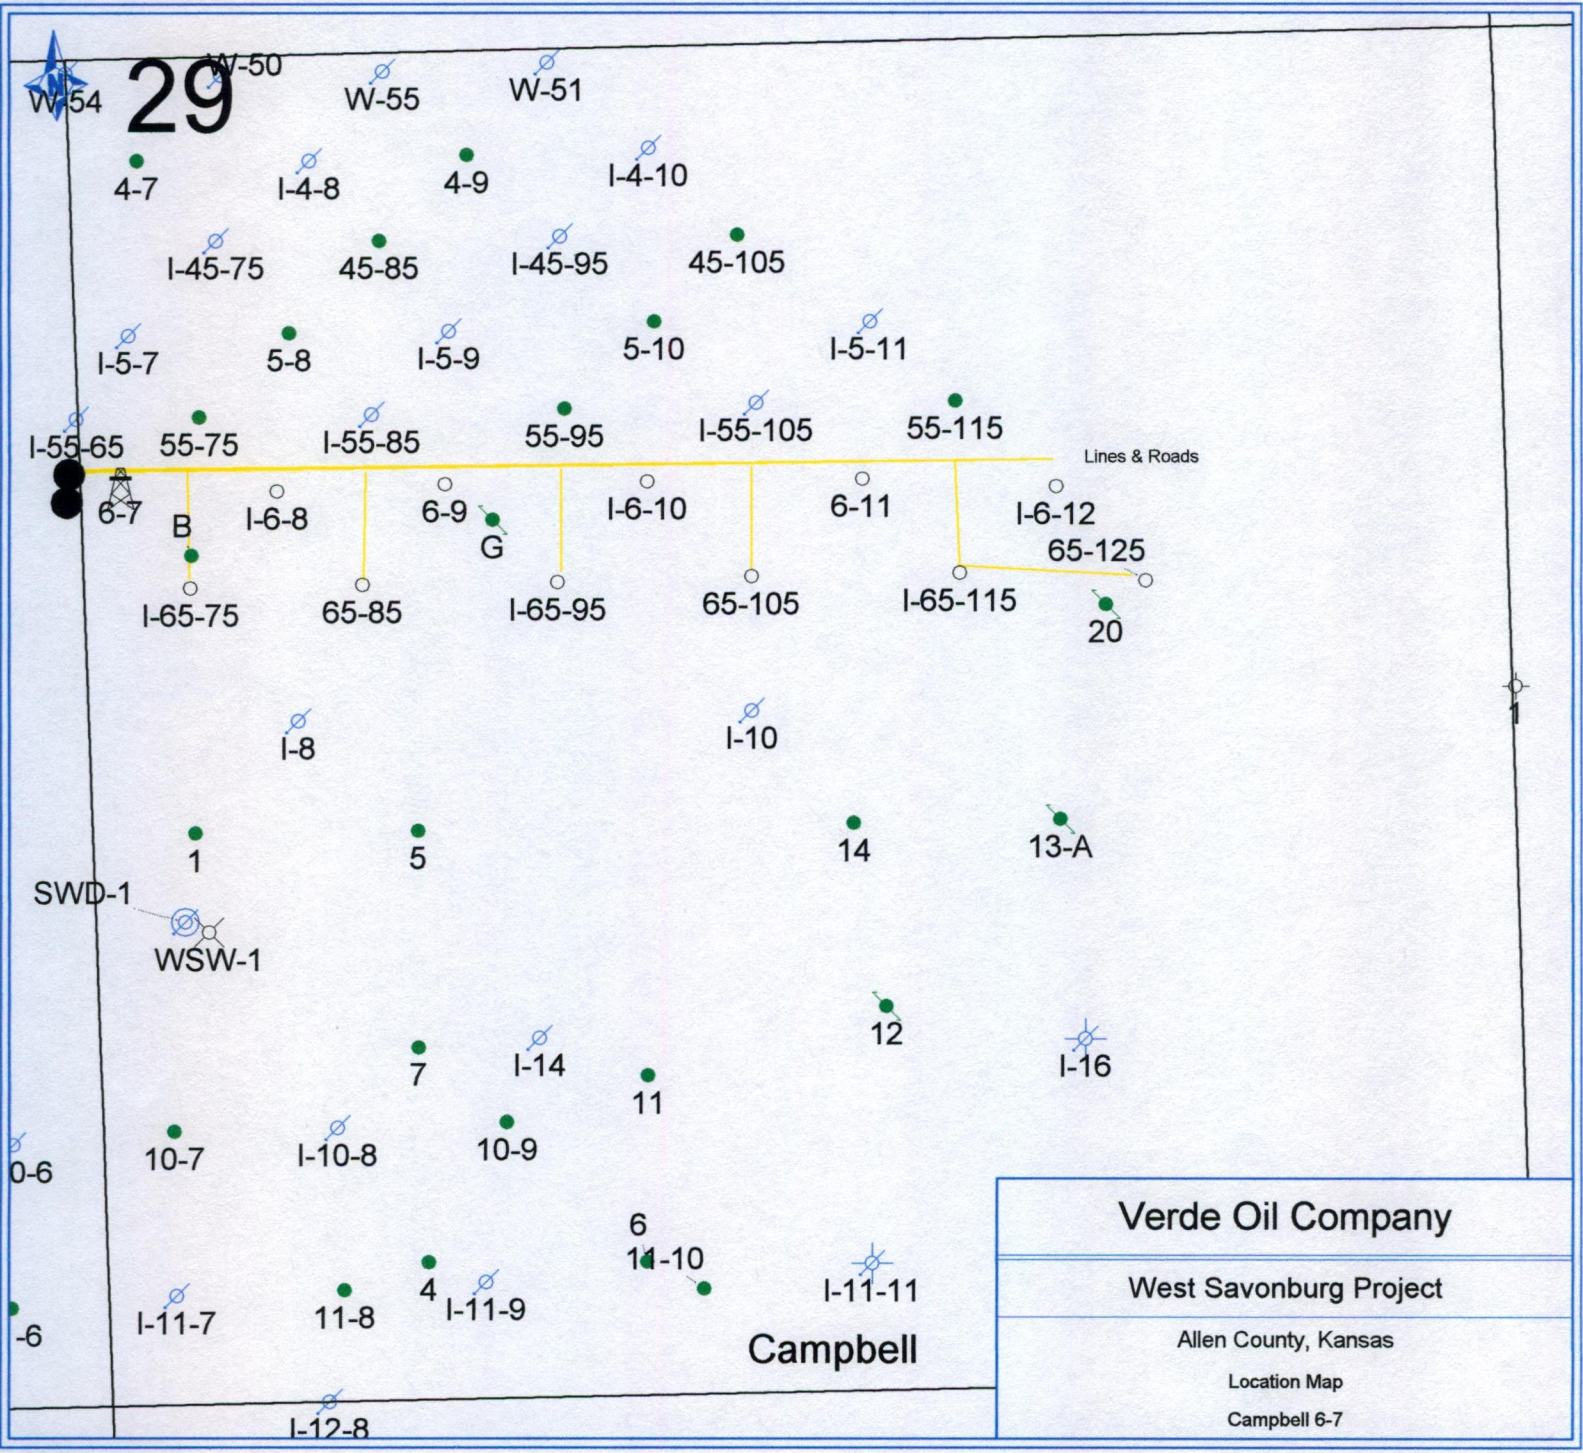 W-50
W-51
W-55
N
W-54
29
4-7
I-4-8
4-9
I-4-10
I-45-75
45-85
I-45-95
45-105
I-5-7
5-8
I-5-9
5-10
I-5-11
I-55-65
55-75
I-55-85
55-95
I-55-105
55-115
Lines & Roads
6-7
I-6-8
6-9
I-6-10
6-11
I-6-12
B
G
65-125
I-65-75
65-85
I-65-95
65-105
I-65-115
20
1
I-8
I-10
1
5
14
13-A
SWD-1
WSW-1
12
7
I-14
11
I-16
0-6
10-7
I-10-8
10-9
6
11-10
-6
I-11-7
11-8
4
I-11-9
I-11-11
Campbell
I-12-8
Verde Oil Company
West Savonburg Project
Allen County, Kansas
Location Map
Campbell 6-7